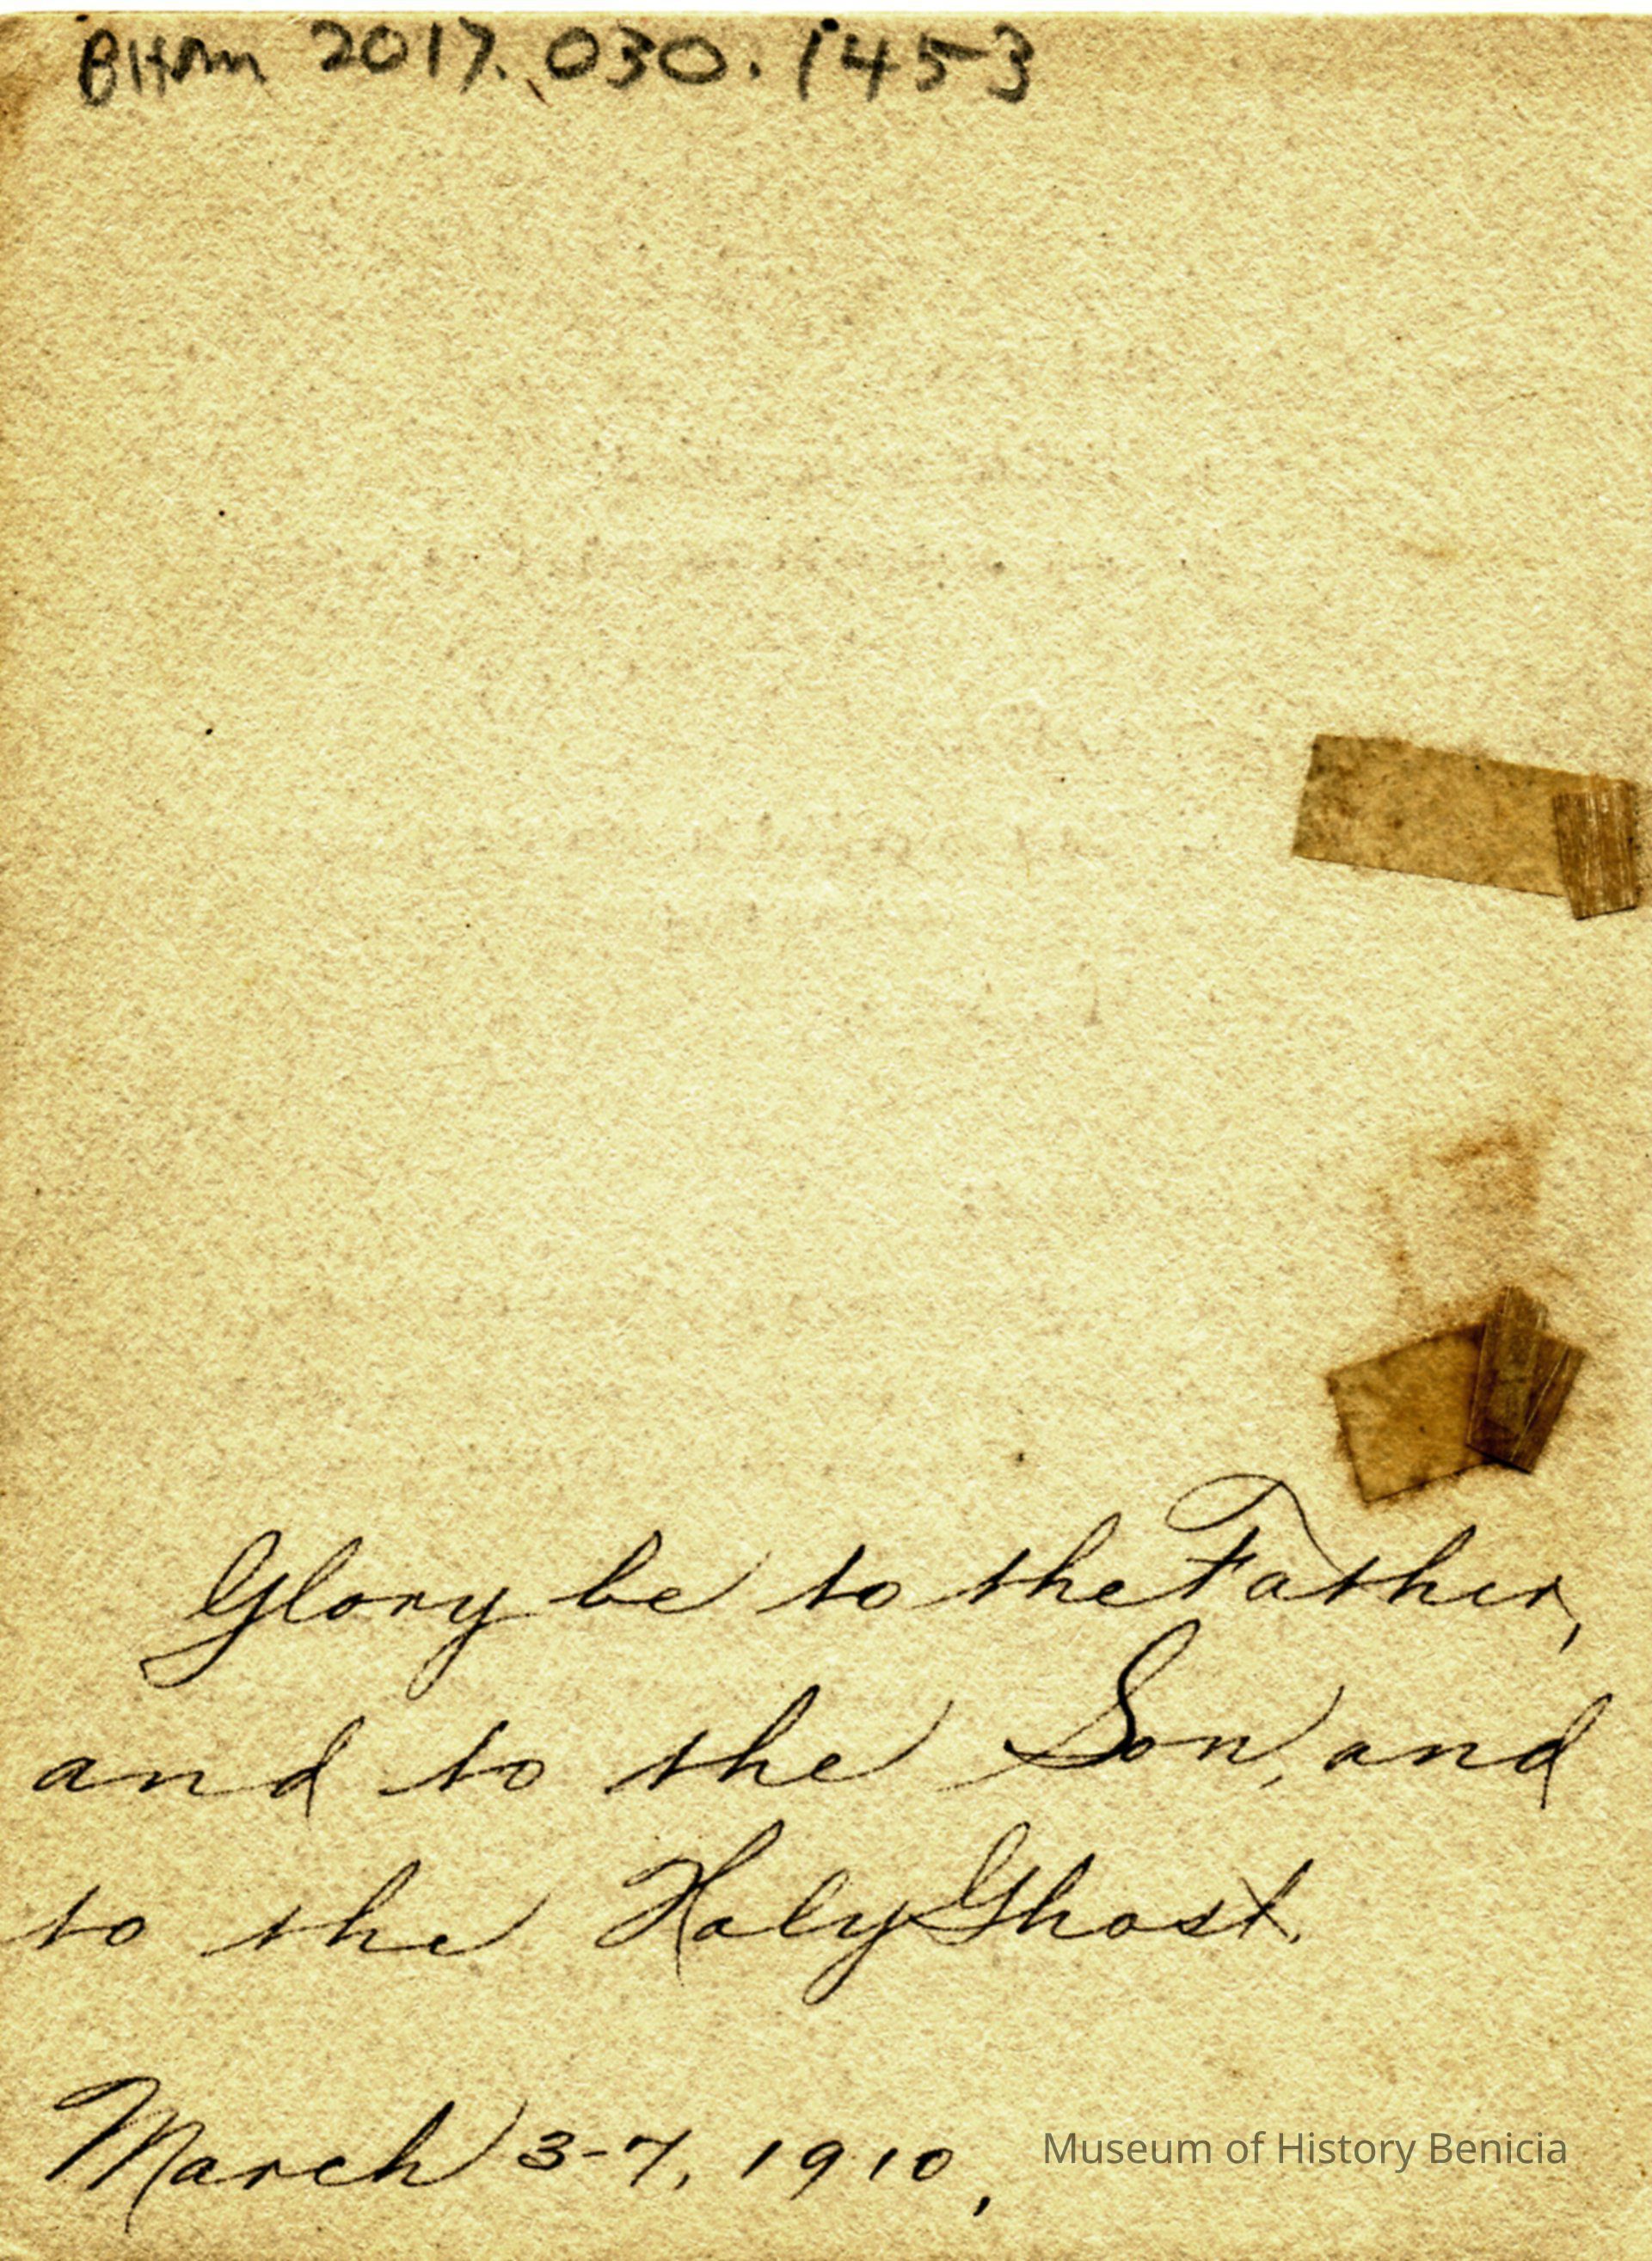 BHAM 2017.030.1453
Glory be to the Father,
and to the Son, and
to the Holy Ghost.
March 3-7, 1910,
Museum of History Benicia